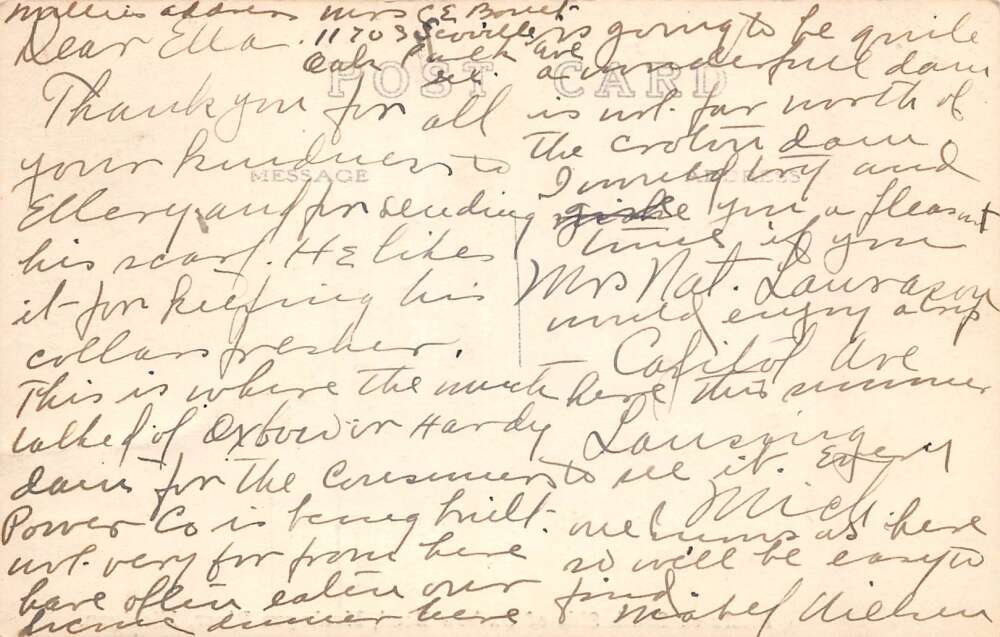 Mollies address Mrs C E Bouck
11703 Seville Ave
Oak Park Ill.
POST CARD
MESSAGE
ADDRESS
Dear Ella.
Thank you for all
your kindness to
Ellery and for sending
his scarf. He likes
it for keeping his
collars fresher.
This is where the much
talked of Oxbow or Hardy
dam for the Consumers
Power Co is being built
not very far from here
have often eaten our
picnic dinner here
is going to be quite
a wonderful dam
is not far north of
the croton dam.
I would try and
give you a pleasant
time if you
would enjoy a trip
here this summer
to see it. Every
one comes as here
so will be easy to
find
Mabel Nielsen
Mrs Nat. Laurason
Capitol Ave
Lansing
Mich.